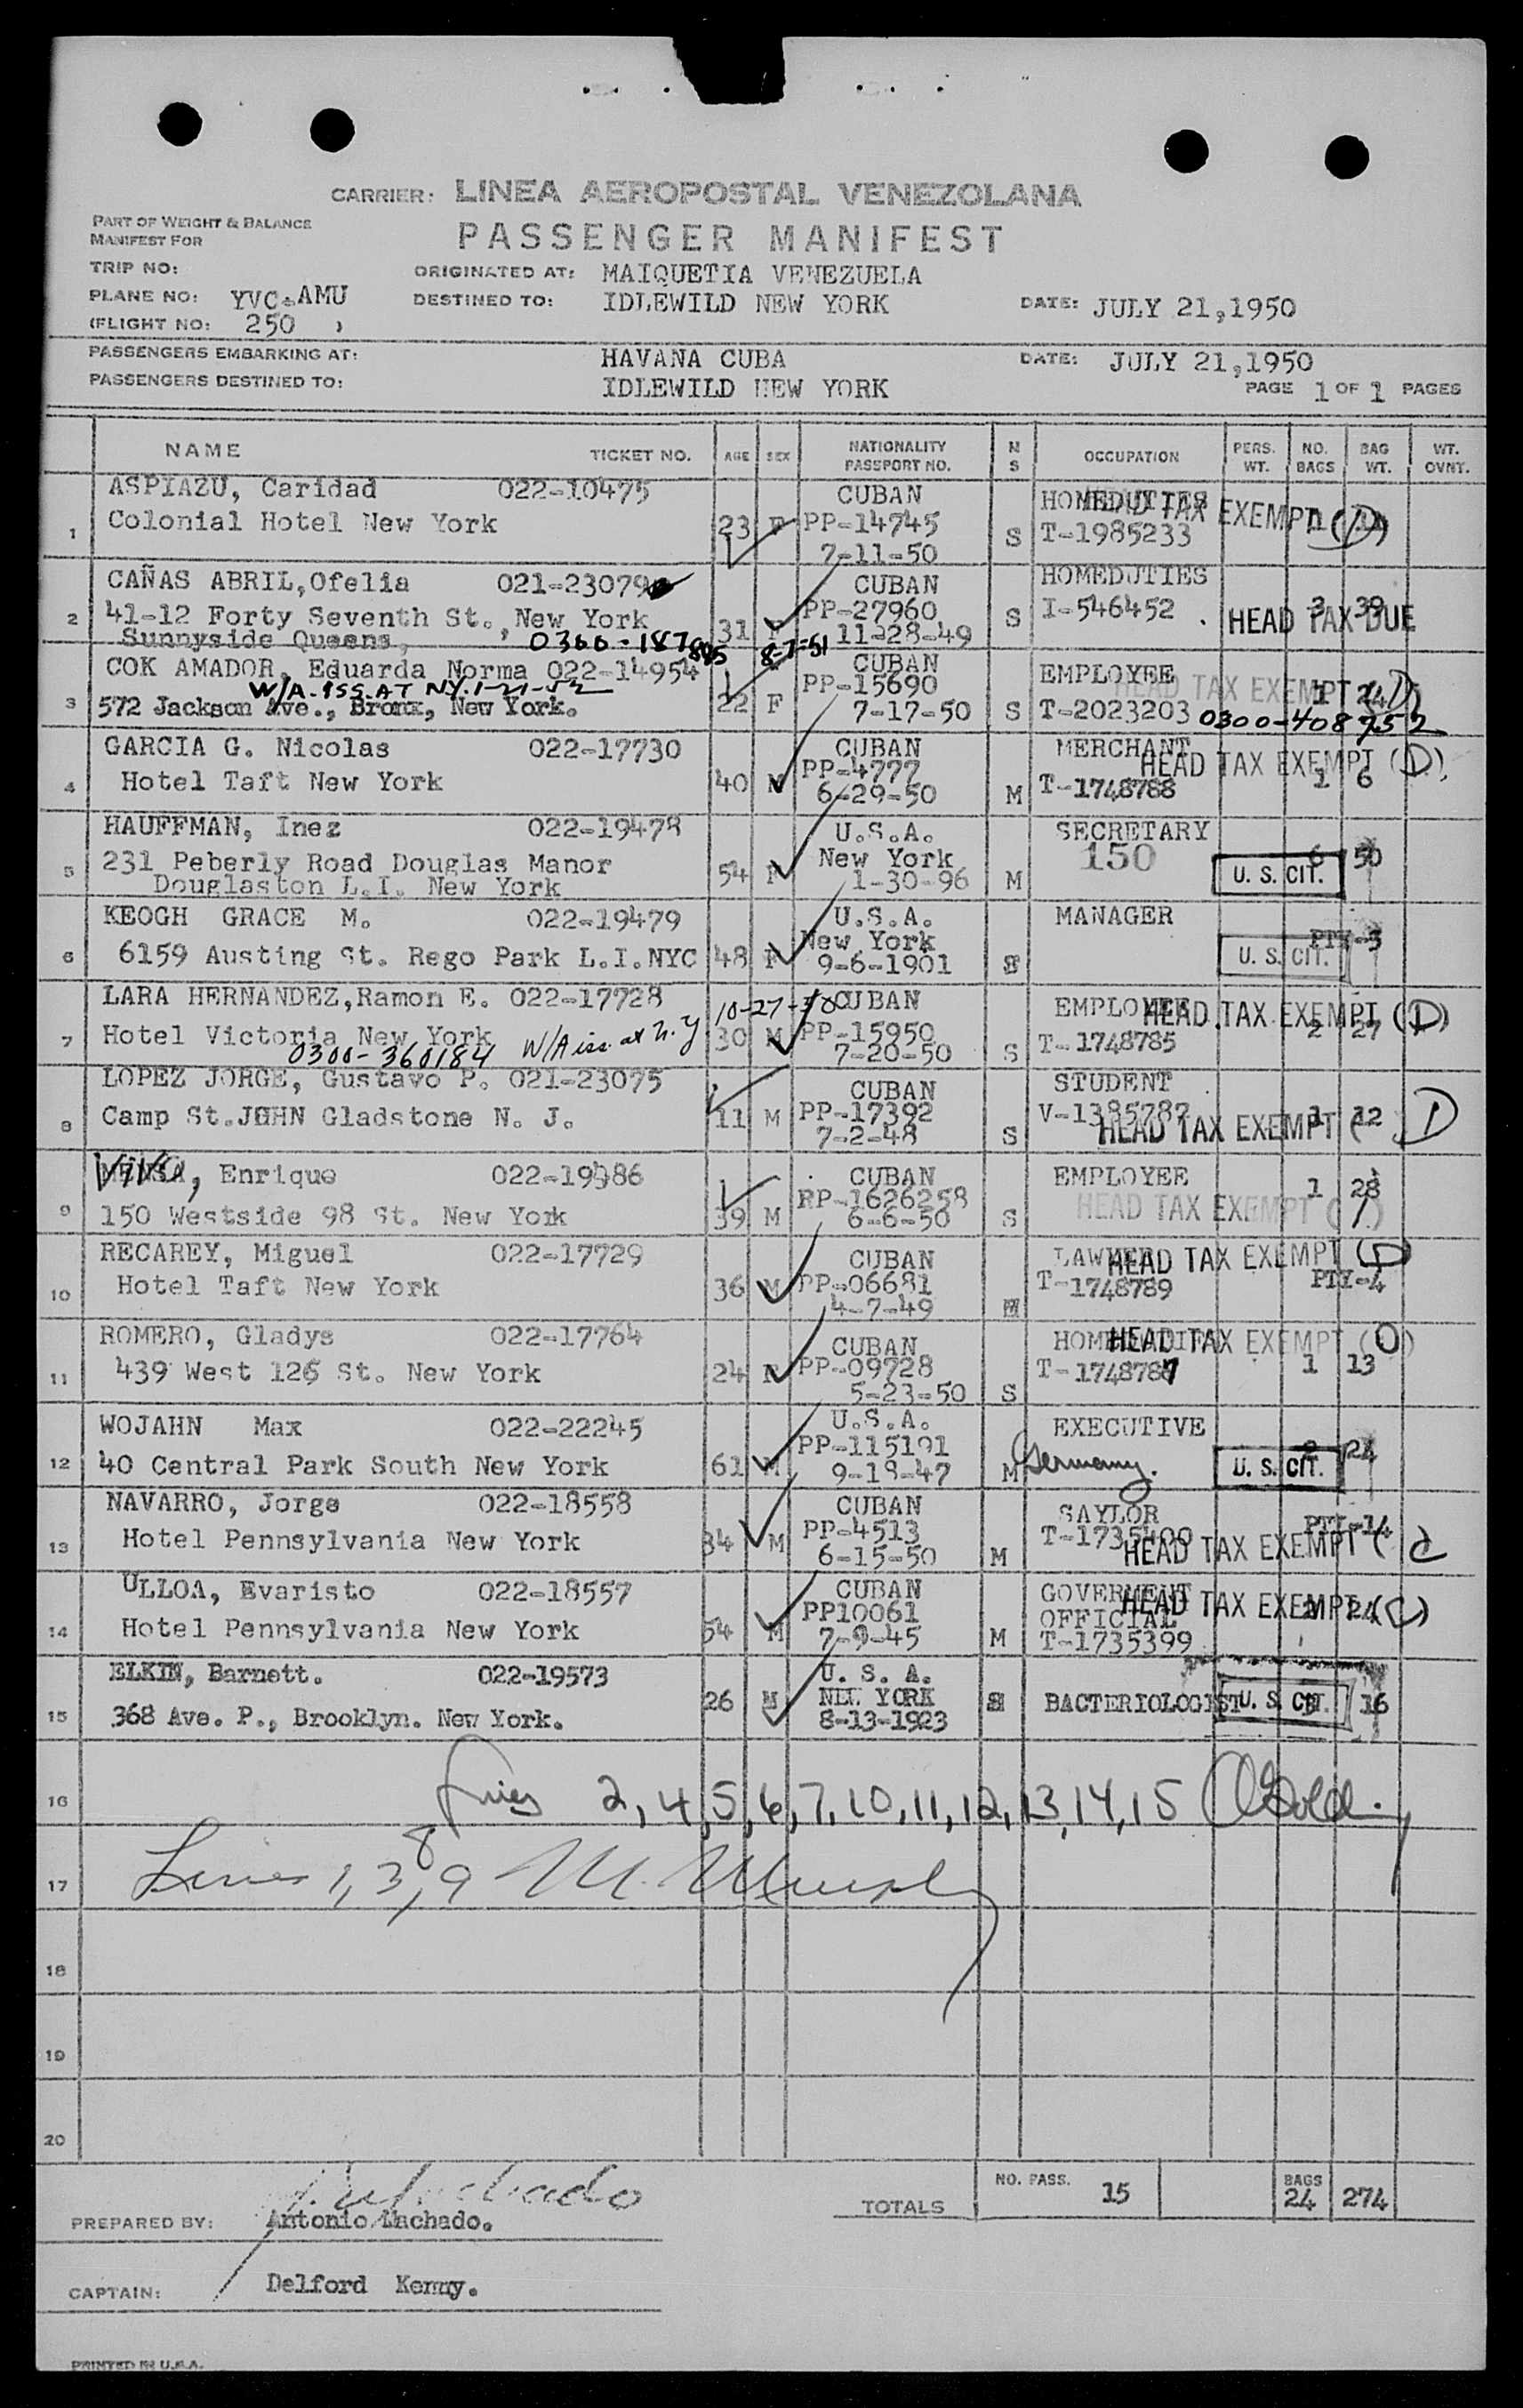 CARRIER: LINEA AEROPOSTAL VENEZOLANA
PART OF WEIGHT & BALANCE
MANIFEST FOR
PASSENGER MANIFEST
TRIP NO:
ORIGINATED AT: MAIQUETIA VENEZUELA
PLANE NO: YVC-AMU
DESTINED TO: IDLEWILD NEW YORK
DATE: JULY 21,1950
(FLIGHT NO: 250 )
PASSENGERS EMBARKING AT: HAVANA CUBA
DATE: JULY 21,1950
PASSENGERS DESTINED TO: IDLEWILD NEW YORK
PAGE 1 OF 1 PAGES
NAME TICKET NO. AGE SEX NATIONALITY PASSPORT NO. M S OCCUPATION PERS. WT. NO. BAGS BAG WT. WT. OVNT.
ASPIAZU, Caridad 022-10475 CUBAN HOMEDUTIES HEAD TAX EXEMPT (D)
1 Colonial Hotel New York 23 F PP-14745 S T-1985233
7-11-50
CAÑAS ABRIL,Ofelia 021-23079 CUBAN HOMEDUTIES
2 41-12 Forty Seventh St., New York 31 F PP-27960 S I-546452 HEAD TAX DUE 39
Sunnyside Queens, 0300-187805 8-7-51 11-28-49
COK AMADOR, Eduarda Norma 022-14954 CUBAN EMPLOYEE
W/A-ISS-AT NY.1-21-52 PP-15690 HEAD TAX EXEMPT (D) 1 24
3 572 Jackson Ave., Bronx, New York. 22 F 7-17-50 S T-2023203 0300-408752
GARCIA G. Nicolas 022-17730 CUBAN MERCHANT HEAD TAX EXEMPT (D)
4 Hotel Taft New York 40 M PP-4777 M T-1748788 1 6
6-29-50
HAUFFMAN, Inez 022-19478 U.S.A. SECRETARY
5 231 Peberly Road Douglas Manor 54 F New York M 150 U. S. CIT. 6 50
Douglaston L.I. New York 1-30-96
KEOGH GRACE M. 022-19479 U.S.A. MANAGER
6 6159 Austing St. Rego Park L.I.NYC 48 F New York S U. S. CIT. PTY-5
9-6-1901
LARA HERNANDEZ,Ramon E. 022-17728 10-27-50 CUBAN EMPLOYEE HEAD TAX EXEMPT (D)
7 Hotel Victoria New York 30 M PP-15950 S T-1748785 2 27
0300-360184 W/A iss. at N.Y. 7-20-50
LOPEZ JORGE, Gustavo P. 021-23075 CUBAN STUDENT
8 Camp St.JOHN Gladstone N. J. 11 M PP-17392 S V-1385787 HEAD TAX EXEMPT ( D 1 12
7-2-48
Vivó, Enrique 022-19986 CUBAN EMPLOYEE 1 28
9 150 Westside 98 St. New York 39 M PP-1626258 S HEAD TAX EXEMPT ( )
6-6-50
RECAREY, Miguel 022-17729 CUBAN LAWYER HEAD TAX EXEMPT (D)
10 Hotel Taft New York 36 M PP-06681 M T-1748789 PTY-4
4-7-49
ROMERO, Gladys 022-17764 CUBAN HOMEDUTIES HEAD TAX EXEMPT (D)
11 439 West 126 St. New York 24 F PP-09728 S T-1748787 1 13
5-23-50
WOJAHN Max 022-22245 U.S.A. EXECUTIVE
12 40 Central Park South New York 61 M PP-115191 M Germany. U. S. CIT. 2 24
9-18-47
NAVARRO, Jorge 022-18558 CUBAN SAYLOR
13 Hotel Pennsylvania New York 34 M PP-4513 M T-1735400 HEAD TAX EXEMPT ( C PTY-14
6-15-50
ULLOA, Evaristo 022-18557 CUBAN GOVERMENT HEAD TAX EXEMPT (C)
14 Hotel Pennsylvania New York 54 M PP10061 M OFFICIAL 2 24
7-9-45 T-1735399
ELKIN, Barnett. 022-19573 U. S. A.
15 368 Ave. P., Brooklyn. New York. 26 M NEW YORK S BACTERIOLOGIST U. S. CIT. 16
8-13-1923
16 Lines 2,4,5,6,7,10,11,12,13,14,15
17 Lines 1,3,8,9 M. Murphy
18
19
20
TOTALS NO. PASS. 15 BAGS 24 274
PREPARED BY: Antonio Machado.
CAPTAIN: Delford Kenny.
PRINTED IN U.S.A.